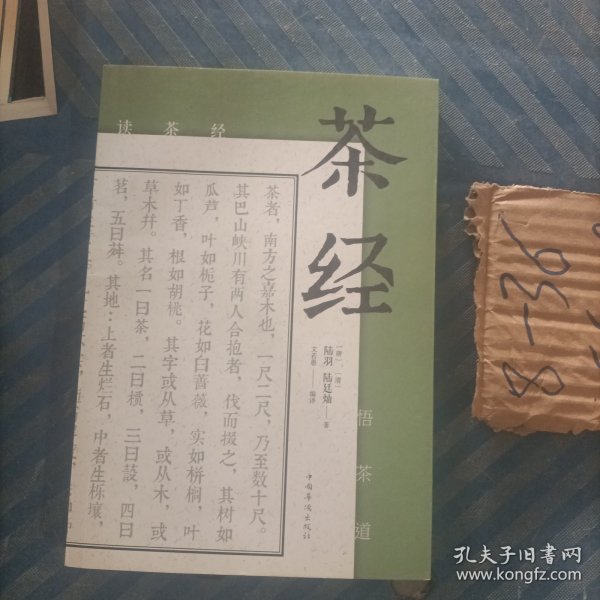 茶经
读茶经
悟茶道
[唐] [清]
陆羽 陆廷灿——著
文若愚——编译
中国华侨出版社
茶者，南方之嘉木也，一尺二尺，乃至数十尺。
其巴山峡川有两人合抱者，伐而掇之，其树如
瓜芦，叶如栀子，花如白蔷薇，实如栟榈，叶
如丁香，根如胡桃。其字或从草，或从木，或
草木并。其名一曰茶，二曰槚，三曰蔎，四曰
茗，五曰荈。其地：上者生烂石，中者生栎壤，
8-36
孔夫子旧书网
www.kongfz.com